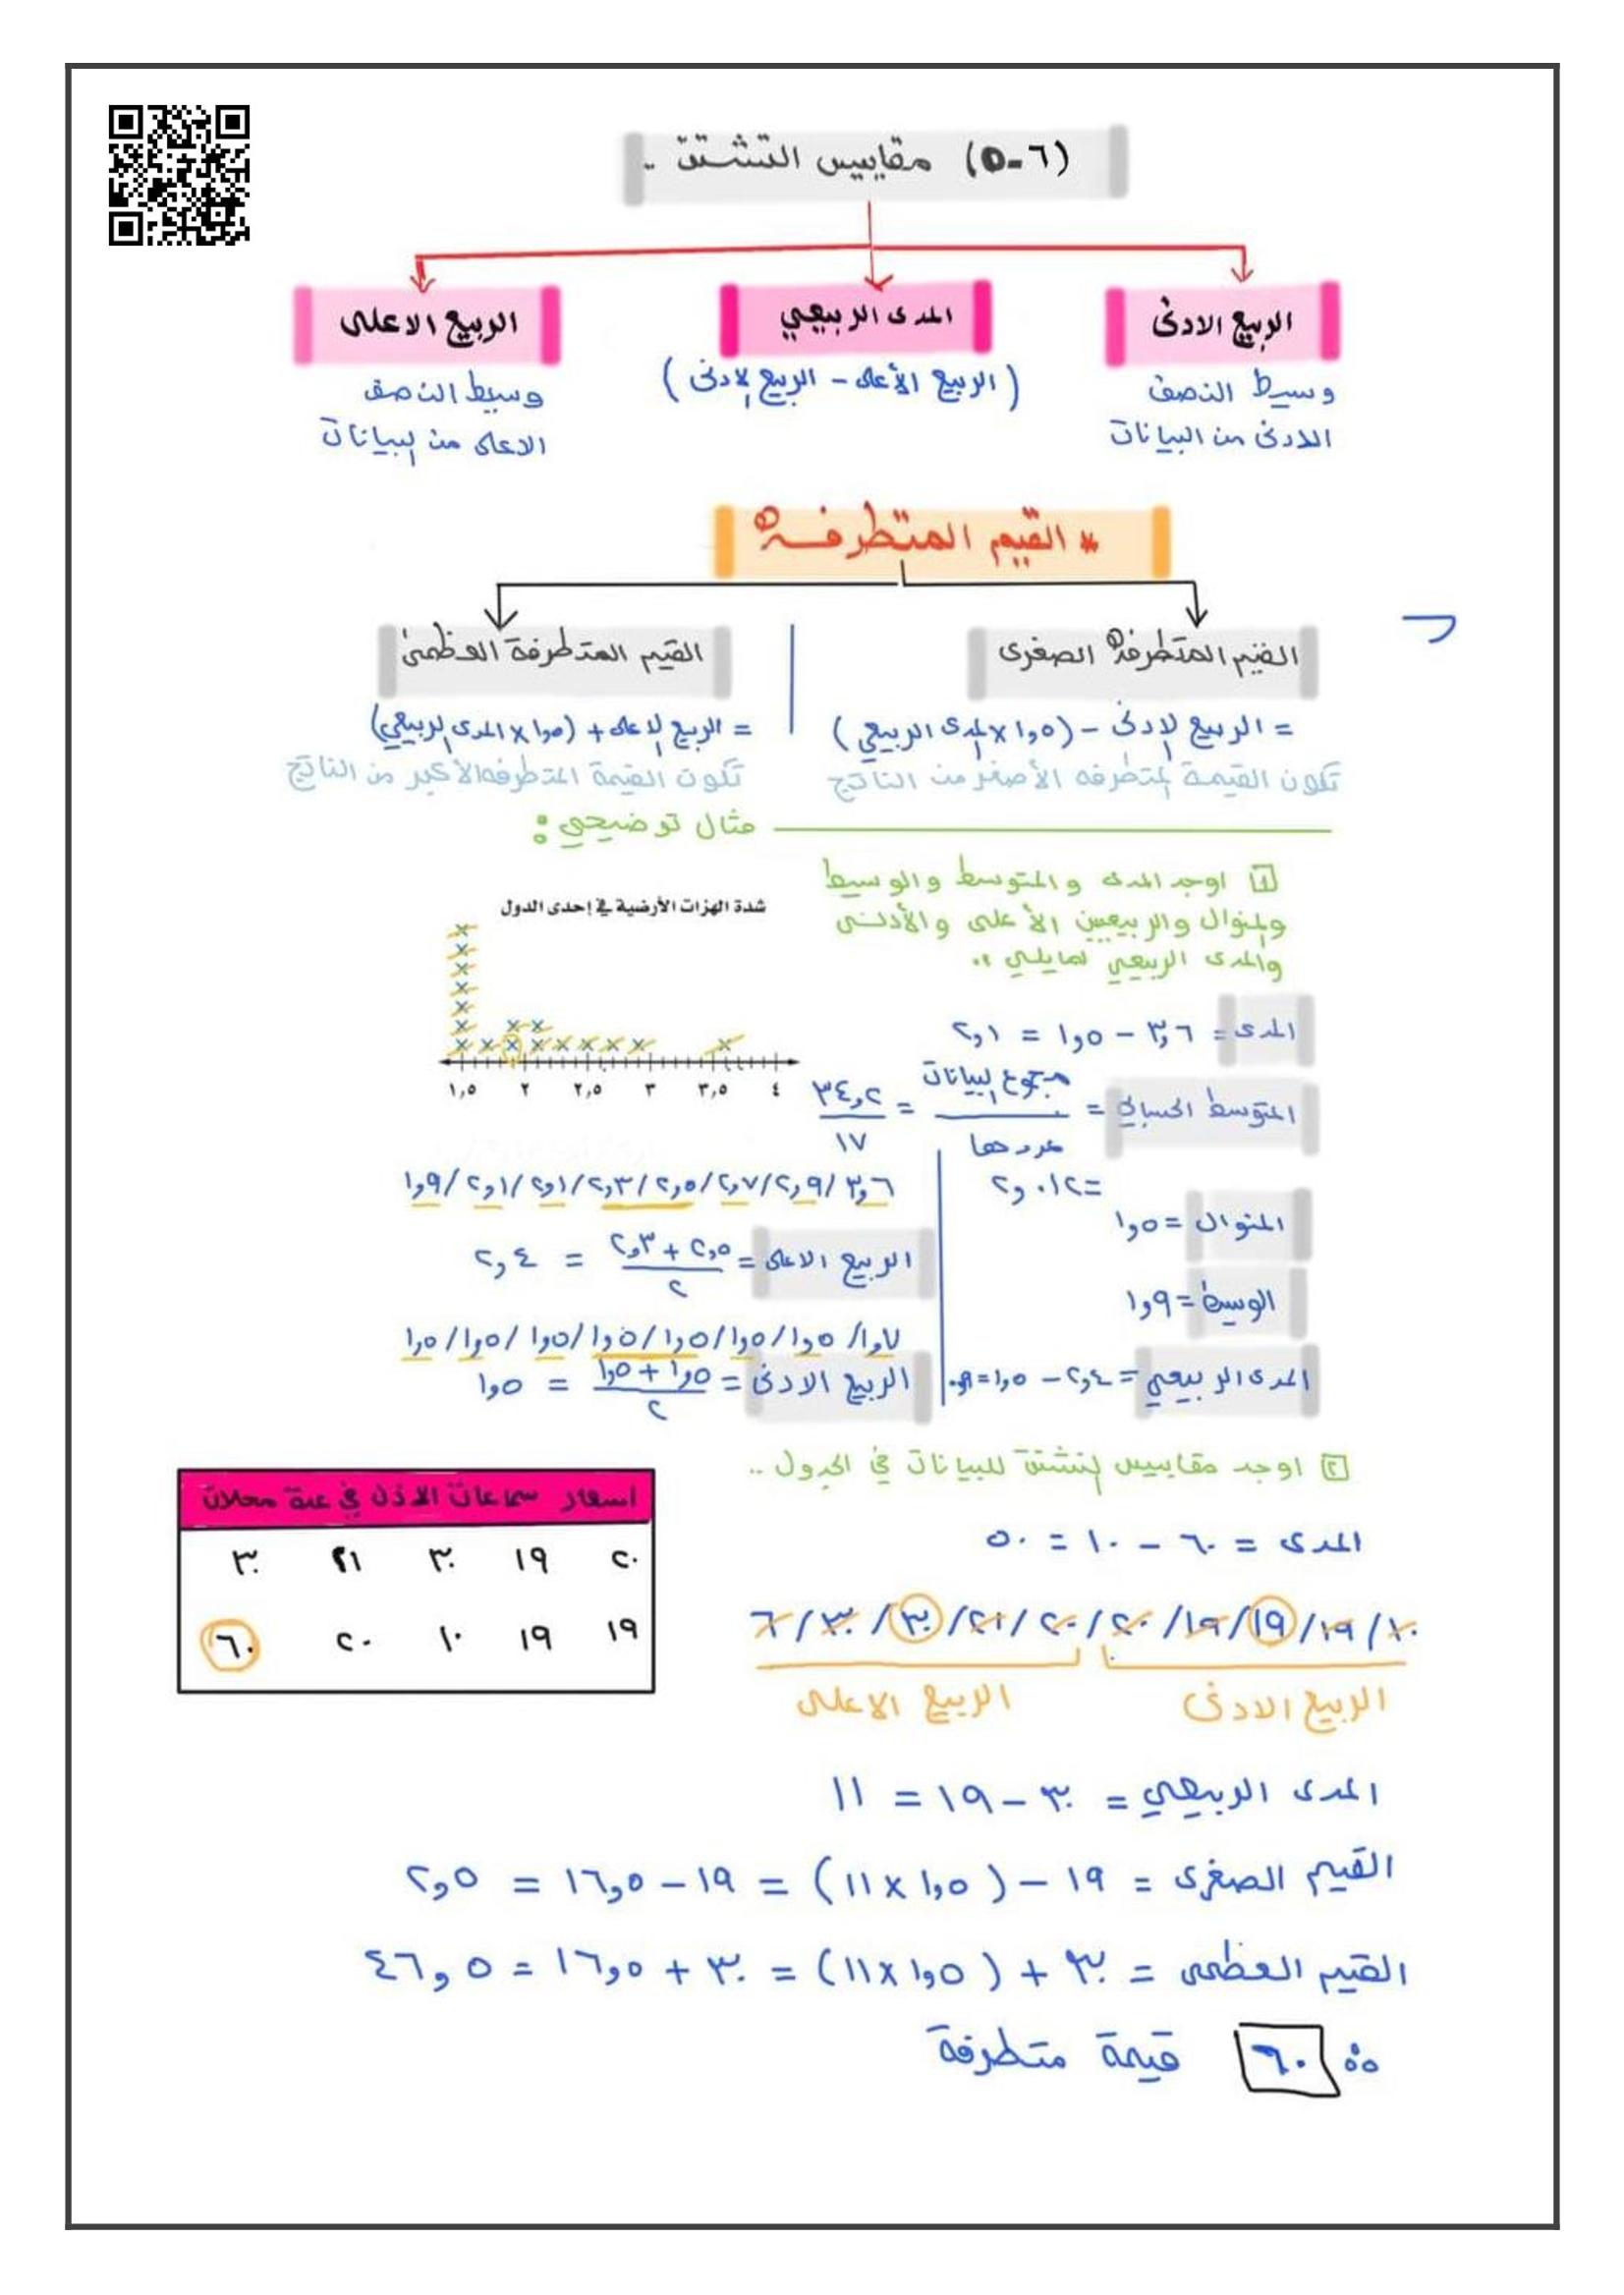 (٦-٥) مقاييس التشتت ..
الربيع الادنى
المدى الربيعي
الربيع الاعلى
وسيط النصف
الادنى من البيانات
(الربيع الأعلى - الربيع الادنى)
وسيط النصف
الاعلى من البيانات
* القيم المتطرفة
القيم المتطرفة الصغرى
القيم المتطرفة العظمى
= الربيع الادنى - (١,٥ × المدى الربيعي)
= الربيع الاعلى + (١,٥ × المدى الربيعي)
تكون القيمة المتطرفه الأصغر من الناتج
تكون القيمة المتطرفه الأكبر من الناتج
مثال توضيحي :
١ اوجد المدى والمتوسط والوسيط
والمنوال والربيعين الأعلى والأدنى
والمدى الربيعي لمايلي ..
شدة الهزات الأرضية في إحدى الدول
١,٥ ٢ ٢,٥ ٣ ٣,٥ ٤
المدى = ٣,٦ - ١,٥ = ٢,١
المتوسط الحسابي = مجموع البيانات / عددها = ٣٤,٢ / ١٧
= ٢,٠١٢
المنوال = ١,٥
الوسيط = ١,٩
المدى الربيعي = ٢,٤ - ١,٥ = ٠,٩
١,٩/ ٢,١/ ٢,١/ ٢,٣/ ٢,٥/ ٢,٧/ ٢,٩/ ٣,٦
الربيع الاعلى = ٢,٣ + ٢,٥ / ٢ = ٢,٤
١,٥/ ١,٥/ ١,٥/ ١,٥/ ١,٥/ ١,٥/ ١,٥/ ١,٧
الربيع الادنى = ١,٥ + ١,٥ / ٢ = ١,٥
٢ اوجد مقاييس التشتت للبيانات في الجدول ..
اسعار سماعات الاذن في عدة محلات
٢٠ ١٩ ٣٠ ٢١ ٣٠
١٩ ١٩ ١٠ ٢٠ ٦٠
المدى = ٦٠ - ١٠ = ٥٠
١٠/ ١٩/ ١٩/ ١٩/ ٢٠/ ٢٠/ ٢١/ ٣٠/ ٣٠/ ٦
الربيع الادنى
الربيع الاعلى
المدى الربيعي = ٣٠ - ١٩ = ١١
القيم الصغرى = ١٩ - (١,٥ × ١١) = ١٩ - ١٦,٥ = ٢,٥
القيم العظمى = ٣٠ + (١,٥ × ١١) = ٣٠ + ١٦,٥ = ٤٦,٥
∴ ٦٠ قيمة متطرفة